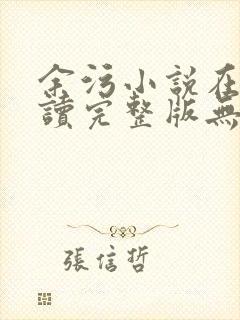 余污小説在
讀完整版無
張信哲